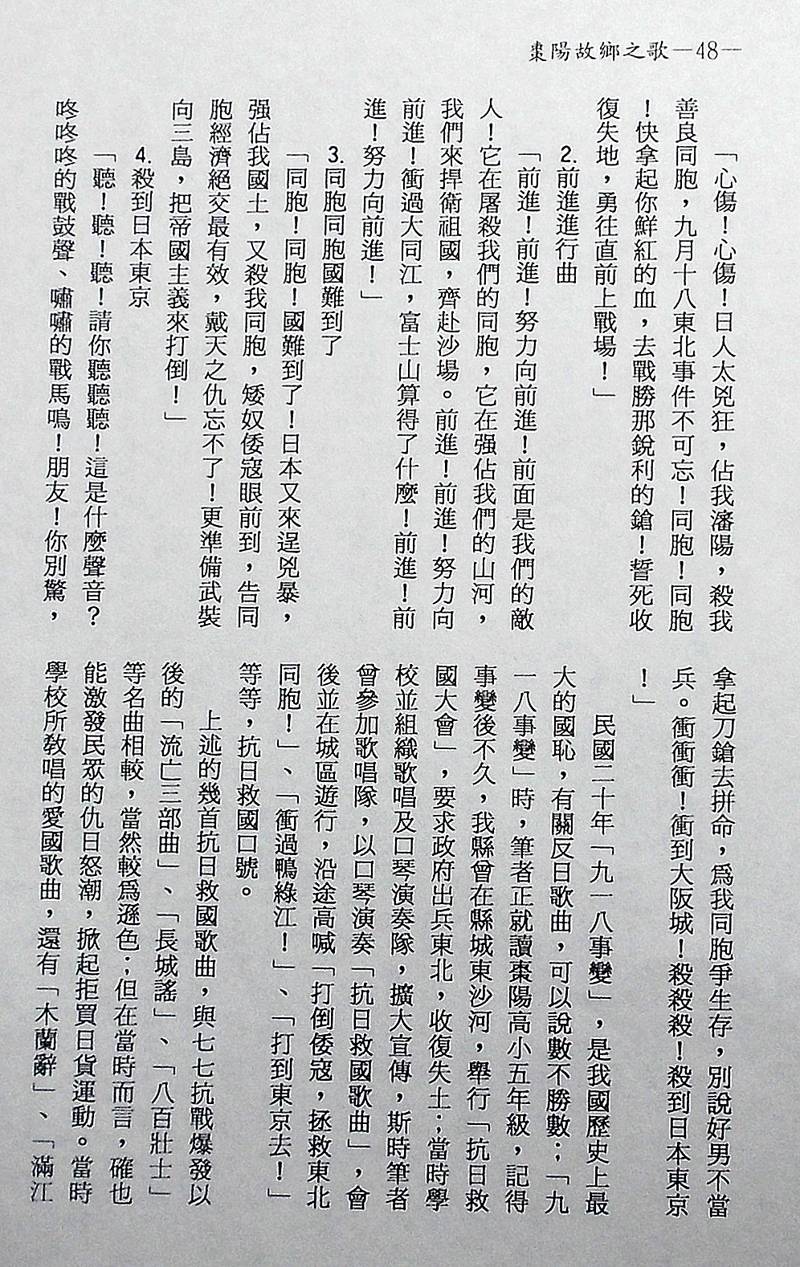 棗陽故鄉之歌—48—
「心傷！心傷！日人太兇狂，佔我瀋陽，殺我
善良同胞，九月十八東北事件不可忘！同胞！同胞
！快拿起你鮮紅的血，去戰勝那銳利的鎗！誓死收
復失地，勇往直前上戰場！」
2.前進進行曲
「前進！前進！努力向前進！前面是我們的敵
人！它在屠殺我們的同胞，它在强佔我們的山河，
我們來捍衛祖國，齊赴沙場。前進！前進！努力向
前進！衝過大同江，富士山算得了什麼！前進！前
進！努力向前進！」
3.同胞同胞國難到了
「同胞！同胞！國難到了！日本又來逞兇暴，
强佔我國土，又殺我同胞，矮奴倭寇眼前到，告同
胞經濟絕交最有效，戴天之仇忘不了！更準備武裝
向三島，把帝國主義來打倒！」
4.殺到日本東京
「聽！聽！聽！請你聽聽聽！這是什麼聲音？
咚咚咚的戰鼓聲、嘯嘯的戰馬鳴！朋友！你別驚，
拿起刀鎗去拼命，爲我同胞爭生存，別說好男不當
兵。衝衝衝！衝到大阪城！殺殺殺！殺到日本東京
！」
民國二十年「九一八事變」，是我國歷史上最
大的國恥，有關反日歌曲，可以說數不勝數；「九
一八事變」時，筆者正就讀棗陽高小五年級，記得
事變後不久，我縣曾在縣城東沙河，舉行「抗日救
國大會」，要求政府出兵東北，收復失土；當時學
校並組織歌唱及口琴演奏隊，擴大宣傳，斯時筆者
曾參加歌唱隊，以口琴演奏「抗日救國歌曲」，會
後並在城區遊行，沿途高喊「打倒倭寇，拯救東北
同胞！」、「衝過鴨綠江！」、「打到東京去！」
等等，抗日救國口號。
上述的幾首抗日救國歌曲，與七七抗戰爆發以
後的「流亡三部曲」、「長城謠」、「八百壯士」
等名曲相較，當然較爲遜色；但在當時而言，確也
能激發民眾的仇日怒潮，掀起拒買日貨運動。當時
學校所教唱的愛國歌曲，還有「木蘭辭」、「滿江